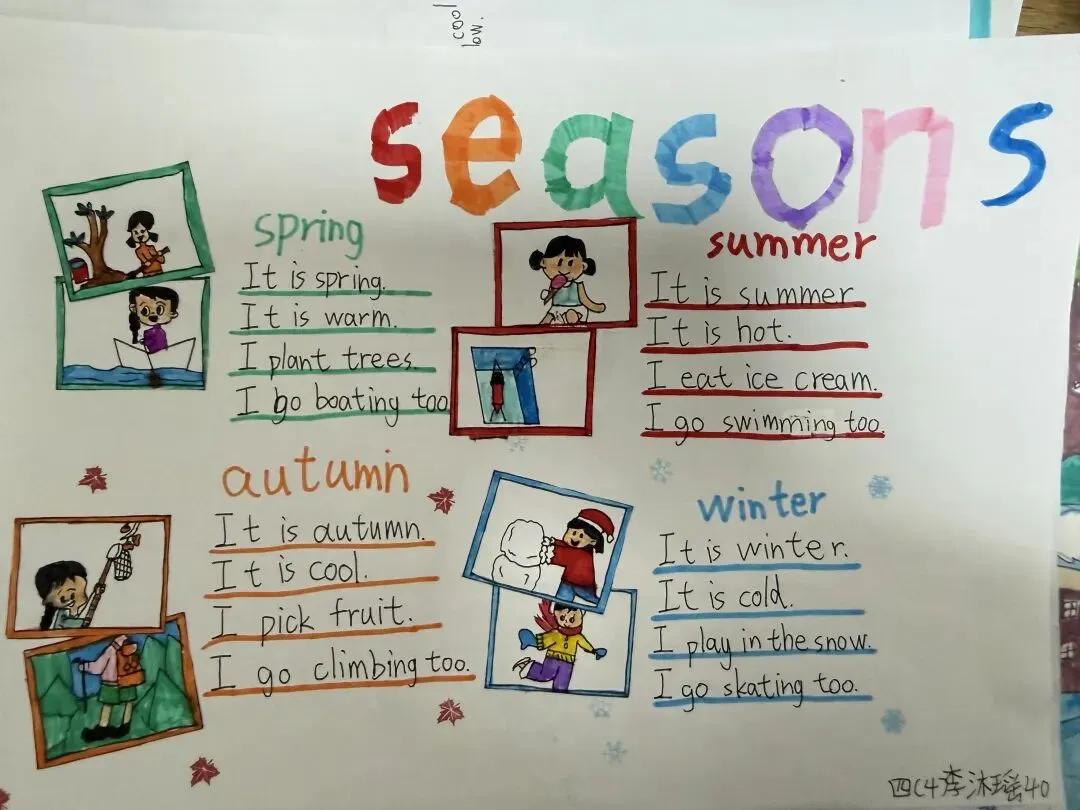 cool
low.
seasons
spring
It is spring.
It is warm.
I plant trees.
I go boating too
summer
It is summer
It is hot.
I eat ice cream.
I go swimming too.
autumn
It is autumn.
It is cool.
I pick fruit.
I go climbing too.
winter
It is winter.
It is cold.
I play in the snow.
I go skating too.
四(4李沐瑶40